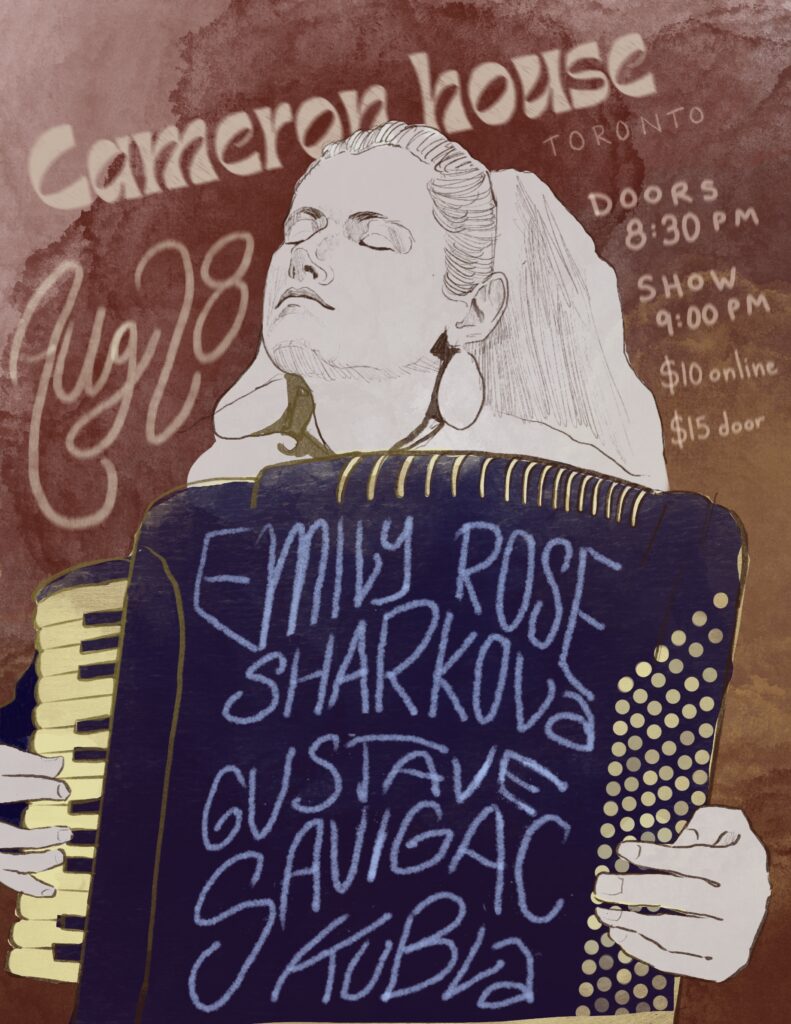 Cameron house
TORONTO
DOORS
8:30 PM
Aug 28
SHOW
9:00 PM
$10 online
$15 door
EMILY ROSE
SHARKOVa
GUSTAVE
SAVIGAC
KUBLa